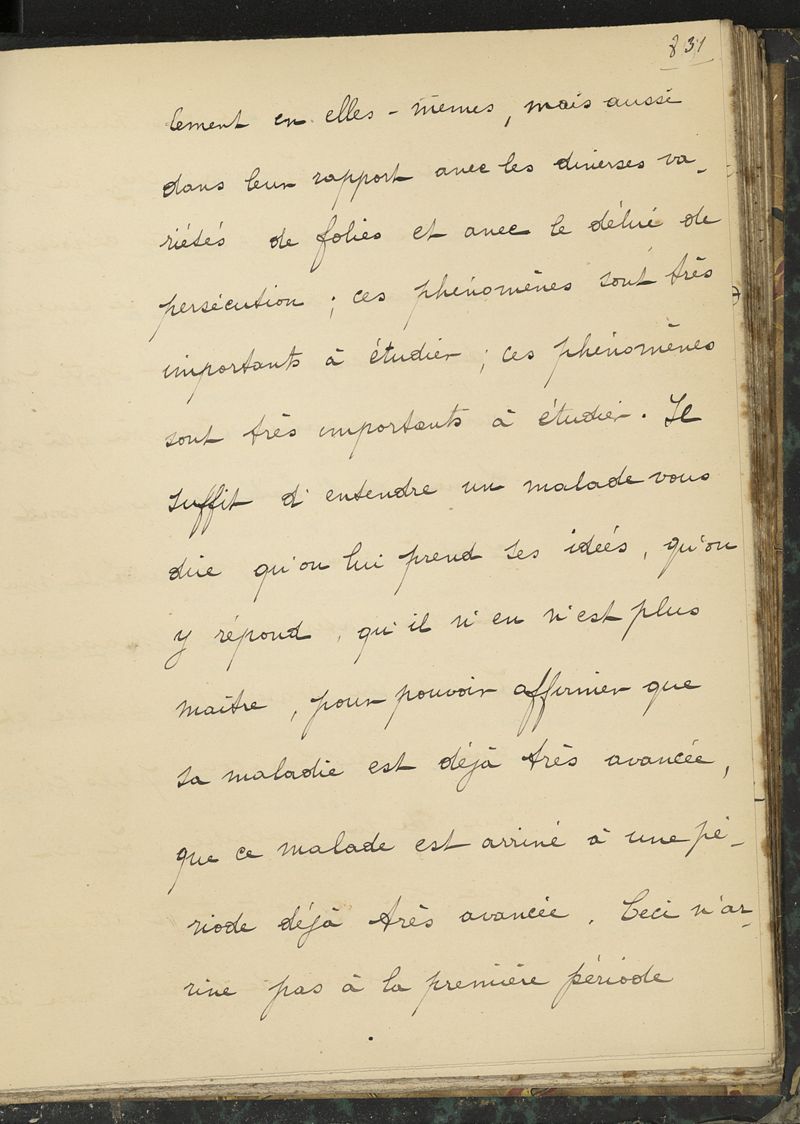 831
lement en elles-mêmes, mais aussi
dans leur rapport avec les diverses va-
riétés de folies et avec le délire de
persécution ; ces phénomènes sont très
importants à étudier ; ces phénomènes
sont très importants à étudier. Il
suffit d'entendre un malade vous
dire qu'on lui prend ses idées, qu'on
y répond, qu'il n'en n'est plus
maître, pour pouvoir affirmer que
sa maladie est déjà très avancée,
que ce malade est arrivé à une pé-
riode déjà très avancée. Ceci n'ar-
rive pas à la première période